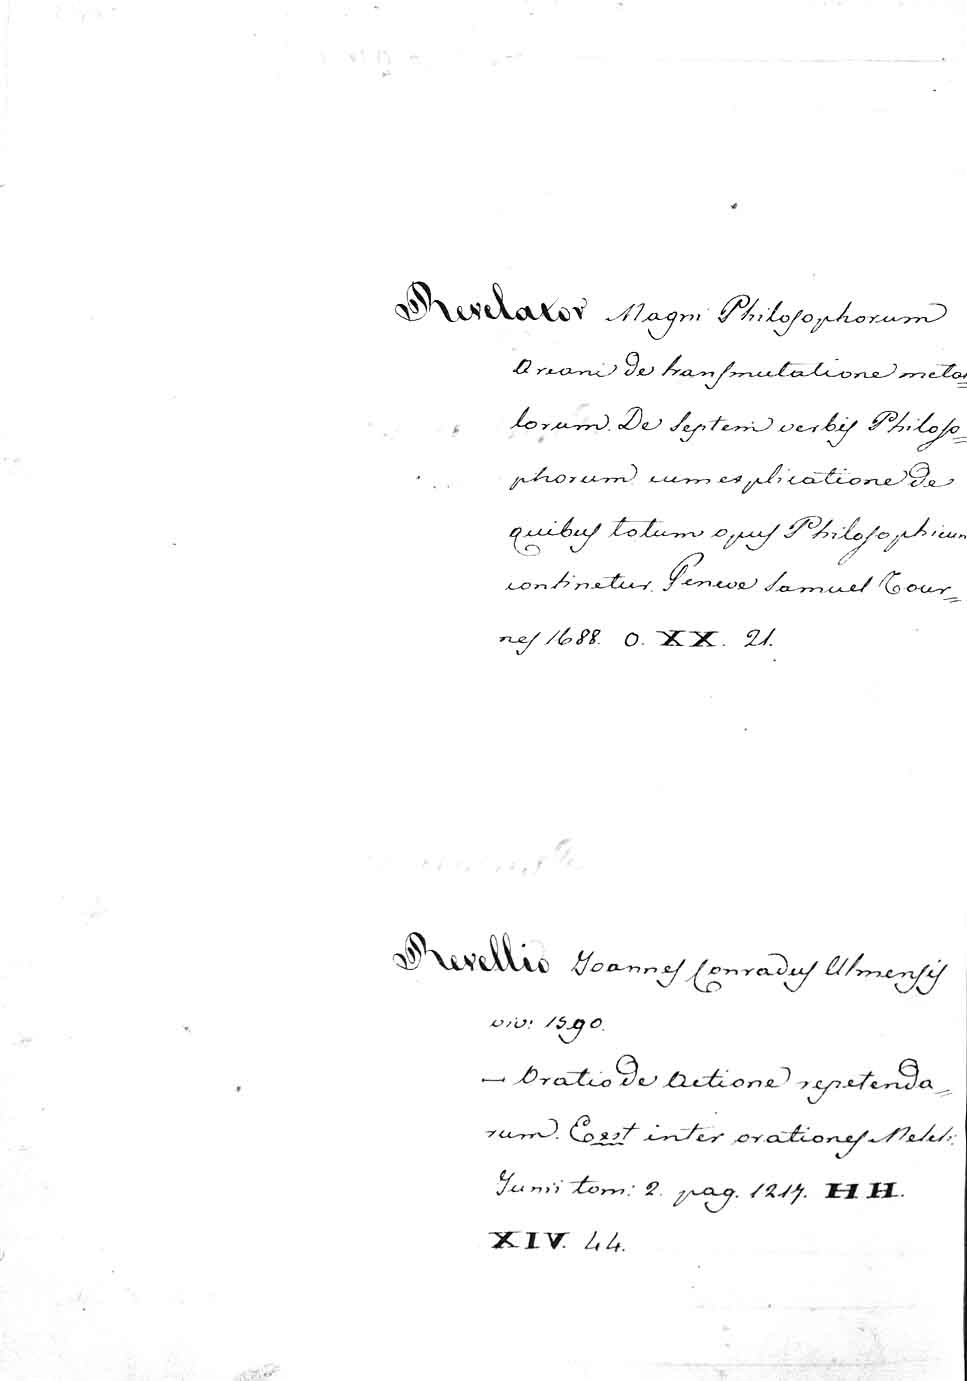 Revelator Magni Philosophorum
Arcani de transmutatione metal=
lorum. De septem verbis Philoso=
phorum cum explicatione de
quibus totum opus Philosophicum
continetur. Geneve Samuel Tour=
nes 1688. O. XX. 21.
Revellio Joannes Conradus Ulmensis
viv: 1590.
— Oratio de Actione repetenda=
rum. Exst inter orationes Melch:
Junii tom: 2. pag. 1217. HH.
XIV. 44.